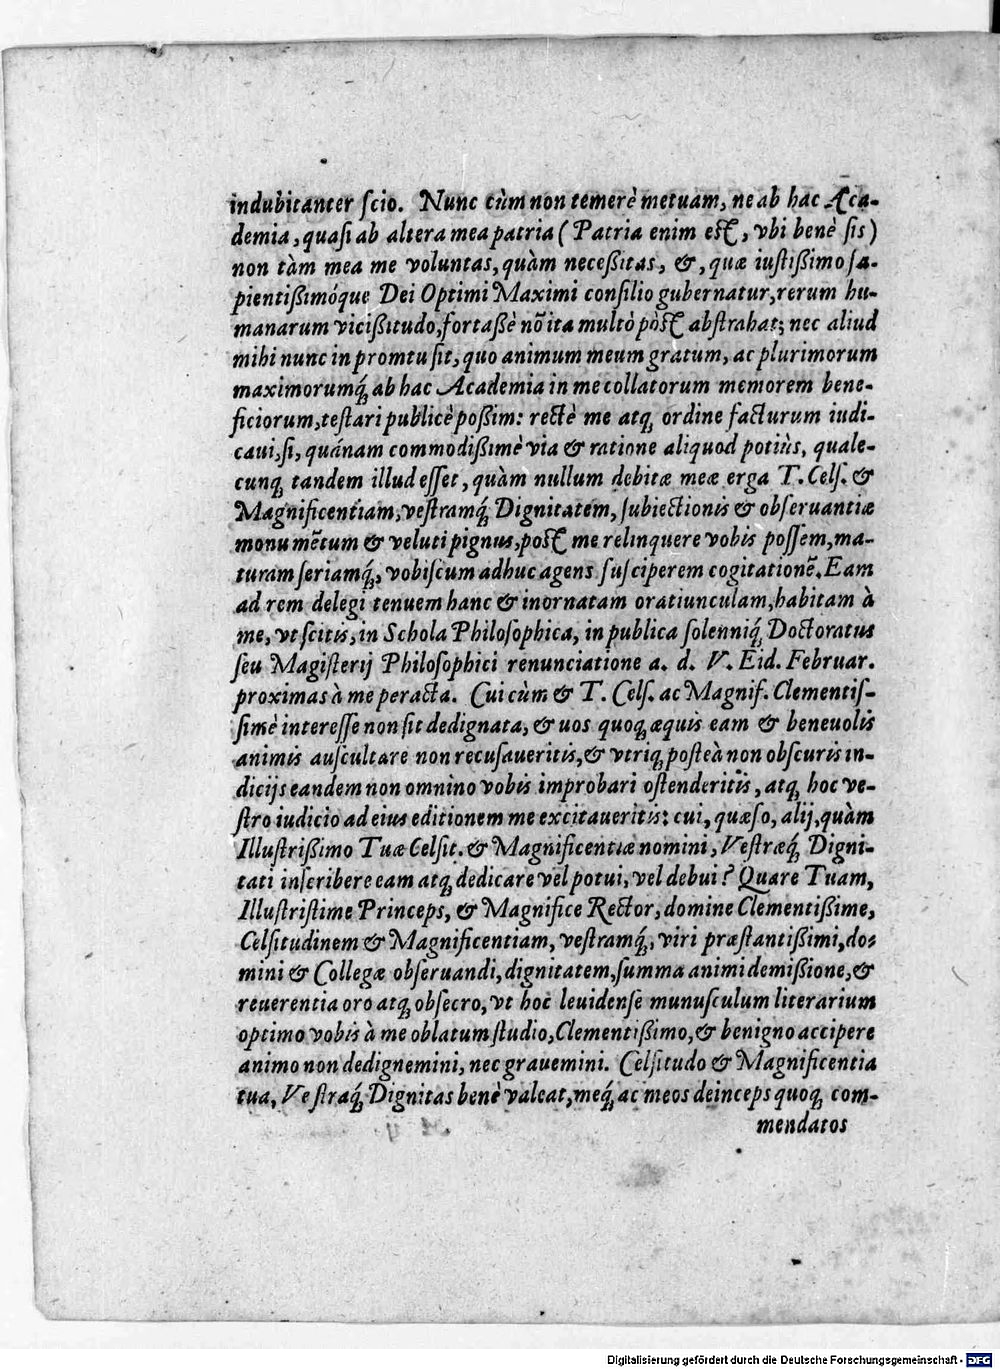 indubitanter ſcio. Nunc cùm non temerè metuam, ne ab hac Aca-
demia, quaſi ab altera mea patria (Patria enim eſt, vbi benè ſis)
non tàm mea me voluntas, quàm neceßitas, &, quæ iuſtißimo ſa-
pientißimóque Dei Optimi Maximi conſilio gubernatur, rerum hu-
manarum vicißitudo, fortaßè nõ ita multò pòſt abſtrahat; nec aliud
mihi nunc in promtu ſit, quo animum meum gratum, ac plurimorum
maximorumq́; ab hac Academia in me collatorum memorem bene-
ficiorum, teſtari publicè poßim: rectè me atq; ordine facturum iudi-
caui, ſi, quánam commodißimè via & ratione aliquod potiùs, quale-
cunq; tandem illud eſſet, quàm nullum debitæ meæ erga T. Celſ. &
Magnificentiam, veſtramq́; Dignitatem, ſubiectionis & obſeruantiæ
monumẽtum & veluti pignus, poſt me relinquere vobis poſſem, ma-
turam ſeriamq́;, vobiſcum adhuc agens ſuſciperem cogitationẽ. Eam
ad rem delegi tenuem hanc & inornatam oratiunculam, habitam à
me, vt ſcitis, in Schola Philoſophica, in publica ſolenniq́; Doctoratus
ſeu Magiſterij Philoſophici renunciatione a. d. V. Eid. Februar.
proximas à me peracta. Cui cùm & T. Celſ. ac Magnif. Clementiſ-
ſimè intereſſe non ſit dedignata, & uos quoq; æquis eam & beneuolis
animis auſcultare non recuſaueritis, & vtriq; poſteà non obſcuris in-
dicijs eandem non omnino vobis improbari oſtenderitis, atq; hoc ve-
ſtro iudicio ad eius editionem me excitaueritis: cui, quæſo, alij, quàm
Illuſtrißimo Tuæ Celſit. & Magnificentiæ nomini, Veſtræq́; Digni-
tati inſcribere eam atq; dedicare vel potui, vel debui? Quare Tuam,
Illuſtriſtime Princeps, & Magnifice Rector, domine Clementißime,
Celſitudinem & Magnificentiam, veſtramq́;, viri præſtantißimi, do-
mini & Collegæ obſeruandi, dignitatem, ſumma animi demißione, &
reuerentia oro atq; obſecro, vt hoc leuidenſe munuſculum literarium
optimo vobis à me oblatum ſtudio, Clementißimo, & benigno accipere
animo non dedignemini, nec grauemini. Celſitudo & Magnificentia
tua, Veſtraq́; Dignitas benè valeat, meq́; ac meos deinceps quoq; com-
mendatos
Digitalisierung gefördert durch die Deutsche Forschungsgemeinschaft - DFG